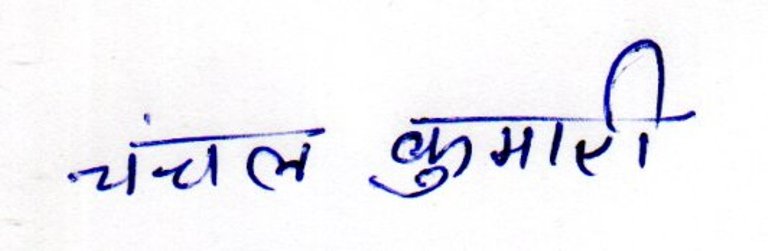 चंचल कुमारी